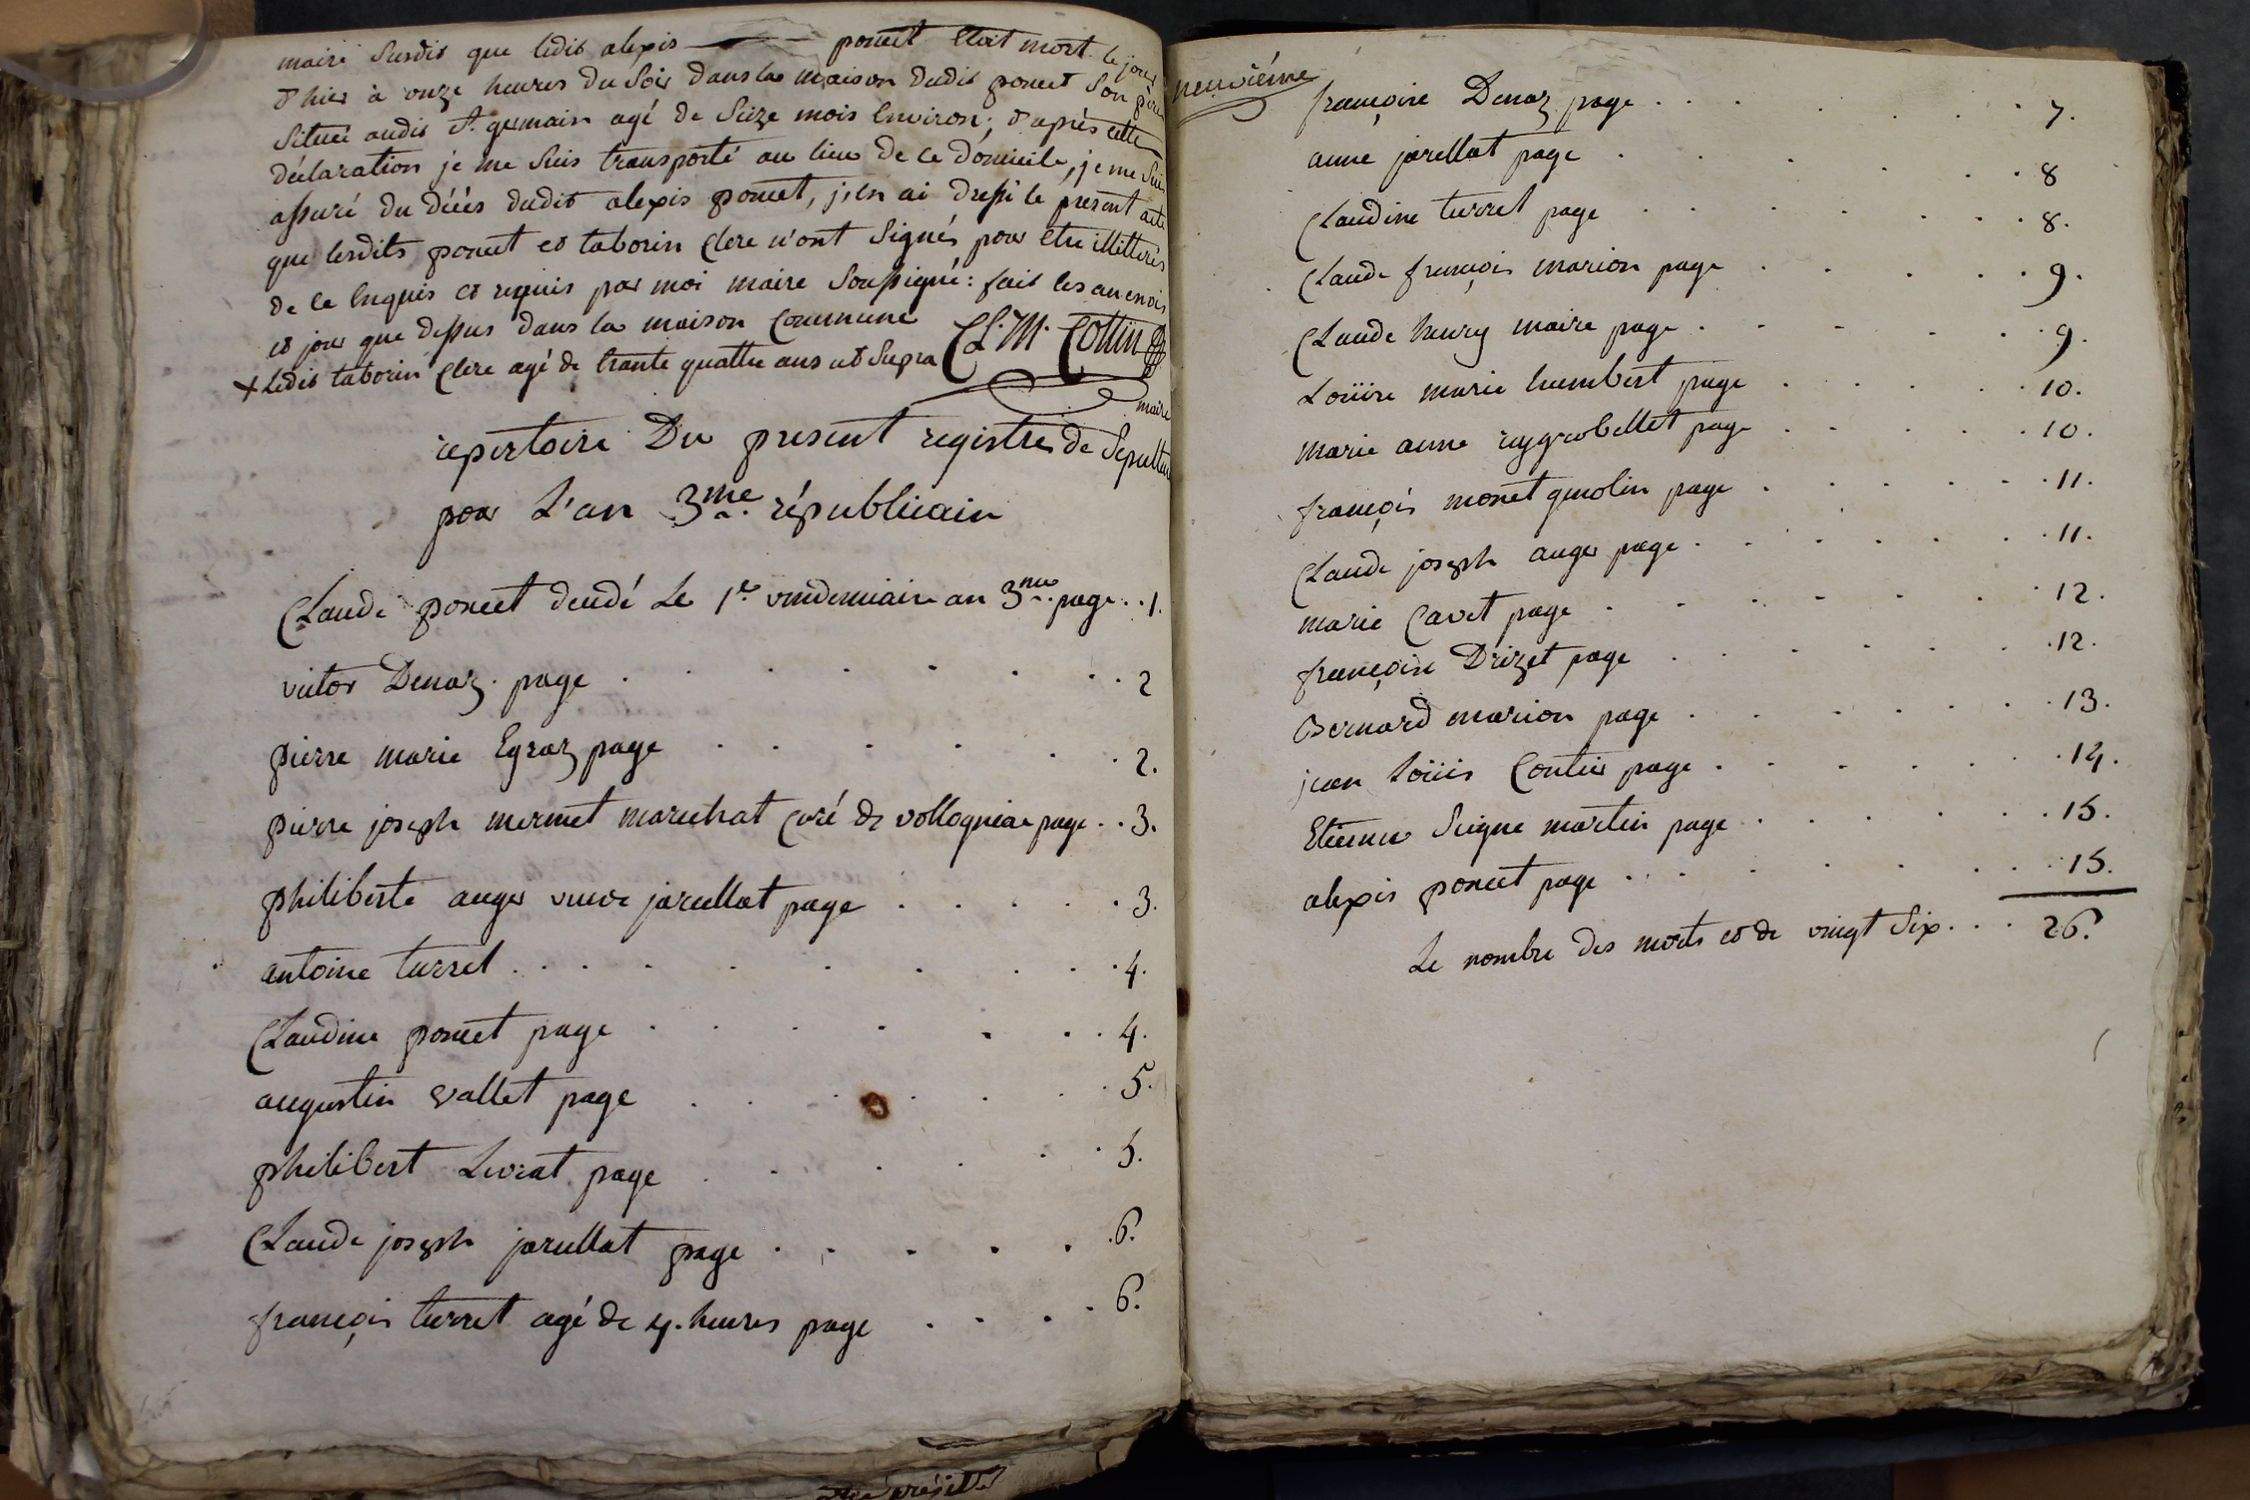 maire susdit que ledit alexis poncet etoit mort le jour
d'hier à onze heures du soir dans la maison dudit poncet son père
située audit St. germain agé de seize mois environ; d'après cette
déclaration je me suis transporté au lieu de ce domicile, je me suis
assuré du décès dudit alexis poncet, j'en ai dressé le présent acte
que lesdits poncet et taborin clerc n'ont signés pour etre illitterés
de ce enquis et requis par moi maire soussigné: fait les an mois
et jour que dessus dans la maison commune
+ ledit taborin clerc agé de trante quattre ans ut supra Cl. M. Cottin
maire
repertoire Du present registre de Sepulture
pour L'an 3me. républicain
Claude poncet décédé Le 1er vendemiaire an 3me. page . . 1.
victor Denaz. page . . . . . . . 2
pierre marie Egraz page . . . . . . 2.
pierre joseph mermet marechat curé de vollognia page . . 3.
philiberte auger veuve jarcellat page . . . . . 3.
antoine turrel . . . . . . . . 4.
Claudine poncet page . . . . . . . 4.
augustin vallet page . . . . . . 5.
philibert Livrat page . . . . . . 5.
Claude joseph jarcellat page . . . . . 6.
françois turrel agé de 4. heures page . . . . 6.
neuvième
françoise Denaz page . . . . . . 7.
anne jarcellat page . . . . . . 8
Claudine turrel page . . . . . . . 8.
Claude françois marion page . . . . . . 9.
Claude henry maire page . . . . . . 9.
Loüise marie humbert page . . . . . . 10.
marie anne reygrobellet page . . . . . . 10.
françois monet genolin page . . . . . . 11.
Claude joseph auger page . . . . . . . 11.
marie Cavet page . . . . . . . 12.
françoise Drizet page . . . . . . . 12.
Bernard marion page . . . . . . . 13.
jean Loüis Contier page . . . . . . . 14.
Etienne Seigne martin page . . . . . . . 15.
alexis poncet page . . . . . . . 15.
Le nombre des morts est de vingt six . . . 26.